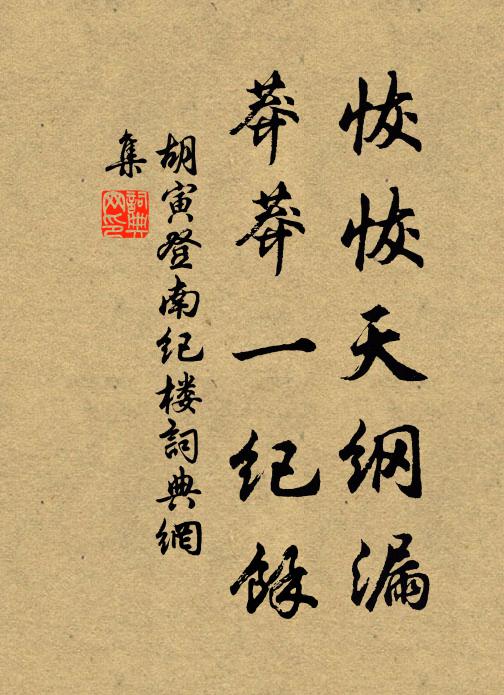 恢恢天纲漏
莽莽一纪馀
胡寅登南纪楼詞典網
集
詞典网印